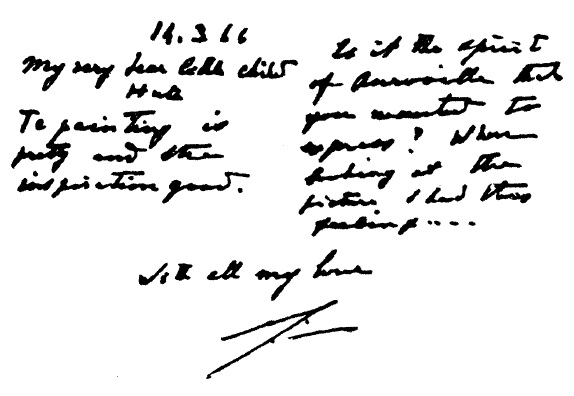 14.3.66
My very dear little child
Huta
Te painting is
pretty and the
inspiration good.
Is it the spirit
of Auroville that
you wanted to
express? When
looking at the
picture I had this
feeling....
With all my love